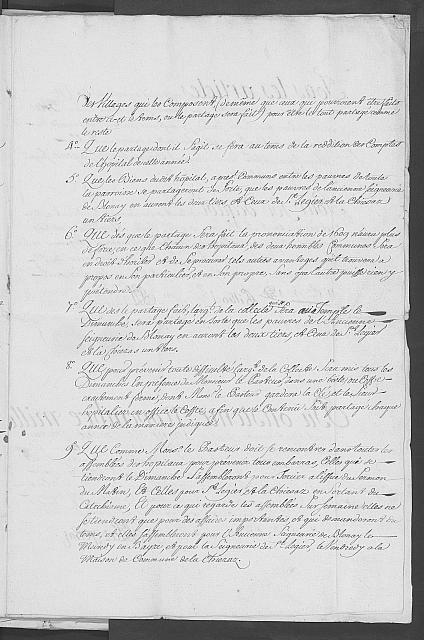 Des Villages qui les Composent (de meme que ceux qui pourroient être faits
entre ci et ce tems, ou le partage sera fait) pour être le tout partagé comme
le reste
4.º Que le partage dont il s'agit se fera au tems de la reddition des Comptes
de l'hopital de cette année.
5.º Que les Biens dudit hôpital, apres Communs entre les pauvres de toute
la parroisse se partageront en sorte, que les pauvres de l'ancienne Seigneurie
de Blonay en auront les deux tiers, et Ceux de S.t Legier et la Chiesaz
un tiers.
6.º Que dès que le partage sera fait la prononciation de 1609 n'aura plus
de force, en ce que Chacun des hopitaux, des deux honobles Communes sera
en droit d'heriter et de se procurer tels autres avantages qu'il trouvera à
propos en son particulier, et en son propre, sans que l'autre puisse rien y
prétendre.
7.º Que dès le partage fait, l'arg.t de la collecte qui se fera au Temple le
Dimanche, sera partagé en sorte que les pauvres de l'Ancienne
Seigneurie de Blonay en auront les deux tiers, et Ceux de S.t Legier
et la Chiesaz un tiers.
8.º Que pour prévenir toute difficulté l'arg.t de la Collecte sera mis tous les
Dimanches en présence de Monsieur le Pasteur dans une boete, ou Coffre
fermé, dont Mons.r le Pasteur gardera la Clé, et le
hopitalier en office le Coffre, afin que le Contenu soit partagé chaque
année de la maniere susditte.
9.º Que Comme Mons.r le Pasteur doit se rencontrer dans toutes les
assemblées des hopitaux pour prévenir tous embarras, Celles qui se
tiendront le Dimanche s'assembleront pour Blonay à l'issue du sermon
du Matin, et Celles pour S.t Legier et la Chiesaz en sortant du
Catechisme, Et pour ce qui regarde les assemblées sur semaine elles ne
se tiendront que pour des affaires importantes, et qui demanderont du
tems, et elles s'assembleront pour l'Ancienne Seigneurie de Blonay le
Mardy en Bayse, et pour la Seigneurie de S.t Legier, le Vendredy à la
Maison de Commune de la Chiesaz.